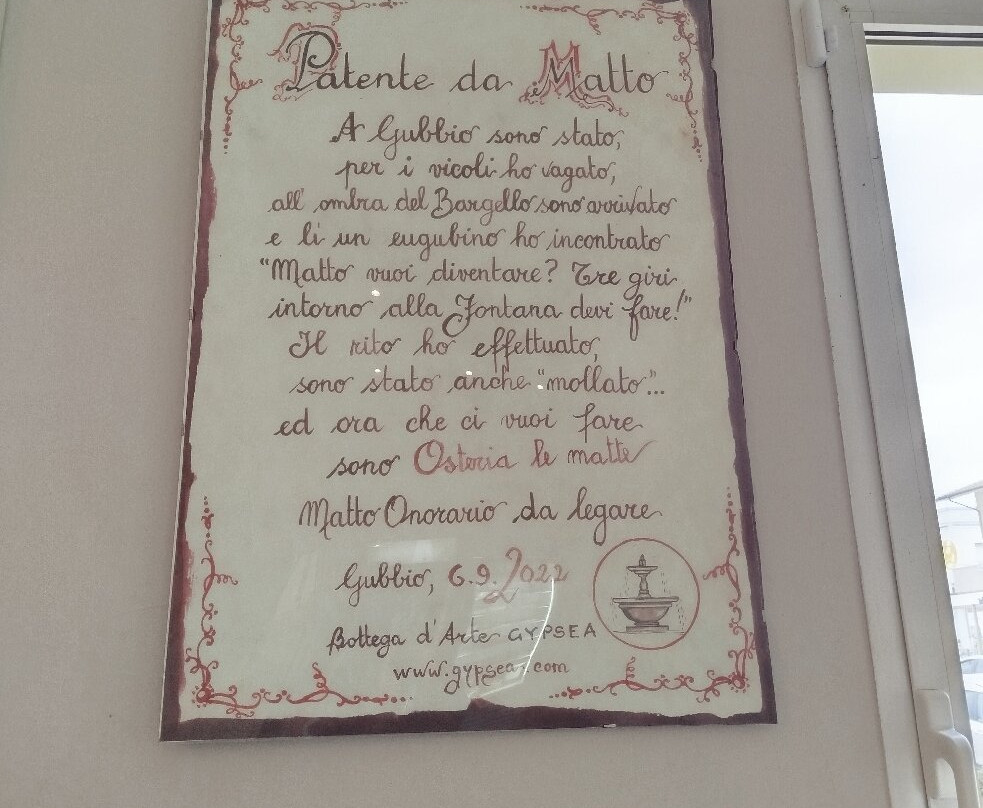 Patente da Matto
A Gubbio sono stato,
per i vicoli ho vagato,
all'ombra del Bargello sono arrivato
e lì un eugubino ho incontrato
"Matto vuoi diventare? Tre giri
intorno alla Fontana devi fare!"
Il rito ho effettuato,
sono stato anche "mollato"...
ed ora che ci vuoi fare
sono Osteria le matte
Matto Onorario da legare
Gubbio, 6.9.2022
Bottega d'Arte GYPSEA
www.gypsea.com